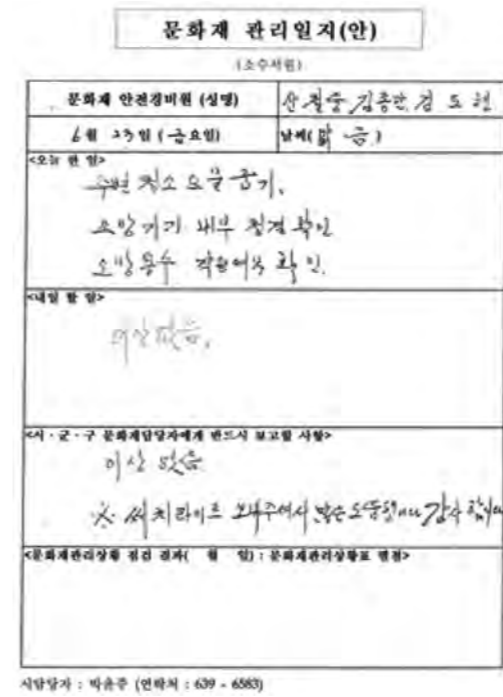 문화재 관리일지(안)
(소수서원)
문화재 안전경비원 (성명) 김종만, 김 도 현
6월 23일 (금요일) 날씨(맑음)
<오늘 한 일>
주변 청소 오물 줍기,
소방기기 내부 청결 확인
소방용수 확인.
<내일 할 일>
이상없음.
<시·군·구 문화재담당자에게 반드시 보고할 사항>
이상 없음
※. 써치라이트 보내주셔서 많은 감사합니다
<문화재관리상황 점검 결과( 월 일) : 문화재관리상황표 별첨>
시담당자 : 박윤주 (연락처 : 639 - 6583)